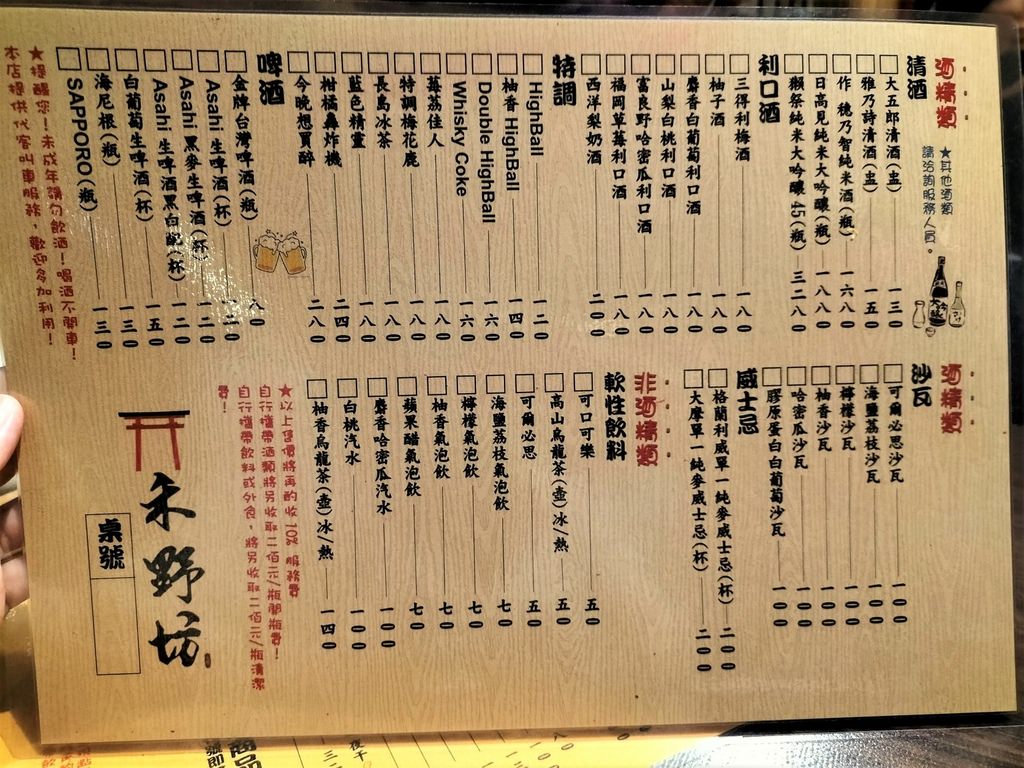 酒精類
★其他酒類
請洽詢服務人員。
清酒
大五郎清酒(盅) 一三〇
雅乃詩清酒(盅) 一五〇
作 穗乃智純米酒(瓶) 一六八〇
日高見純米大吟釀(瓶) 一八八〇
獺祭純米大吟釀45(瓶) 三二八〇
利口酒
三得利梅酒 一八〇
柚子酒 一八〇
麝香白葡萄利口酒 一八〇
山梨白桃利口酒 一八〇
富良野哈密瓜利口酒 一八〇
福岡草莓利口酒 一八〇
西洋梨奶酒 二〇〇
特調
HighBall 一二〇
柚香 HighBall 一四〇
Double HighBall 一六〇
Whisky Coke 一六〇
莓荔佳人 一八〇
特調梅花鹿 一八〇
長島冰茶 一八〇
藍色精靈 一八〇
柑橘轟炸機 二四〇
今晚想買醉 二八〇
啤酒
金牌台灣啤酒(瓶) 八〇
Asahi 生啤酒(杯) 一二〇
Asahi 黑麥生啤酒(杯) 一二〇
Asahi 生啤酒黑白配(杯) 一二〇
白葡萄生啤酒(杯) 一五〇
海尼根(瓶) 一三〇
SAPPORO(瓶) 一三〇
★提醒您！未成年請勿飲酒！喝酒不開車！
本店提供代客叫車服務，歡迎多加利用！
酒精類
沙瓦
可爾必思沙瓦 一〇〇
海鹽荔枝沙瓦 一〇〇
檸檬沙瓦 一〇〇
柚香沙瓦 一〇〇
哈密瓜沙瓦 一〇〇
膠原蛋白白葡萄沙瓦 一〇〇
威士忌
格蘭利威單一純麥威士忌(杯) 二一〇
大摩單一純麥威士忌(杯) 二〇〇
非酒精類
軟性飲料
可口可樂 五〇
高山烏龍茶(壺)冰/熱 五〇
可爾必思 五〇
海鹽荔枝氣泡飲 七〇
檸檬氣泡飲 七〇
柚香氣泡飲 七〇
蘋果醋氣泡飲 七〇
麝香哈密瓜汽水 一〇〇
白桃汽水 一〇〇
柚香烏龍茶(壺)冰/熱 一四〇
★以上售價將再酌收10% 服務費
自行攜帶酒類將另收取二佰元/瓶開瓶費！
自行攜帶飲料或外食，將另收取二佰元/瓶清潔
費！
禾野坊
桌號